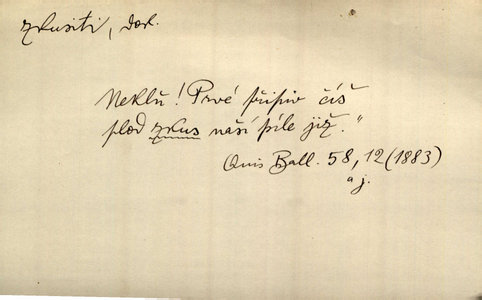 zkusiti, dok.
Neklň! Prvé připiv číš
plod zkus naší píle již."
Quis Ball. 58, 12 (1883)
a j.